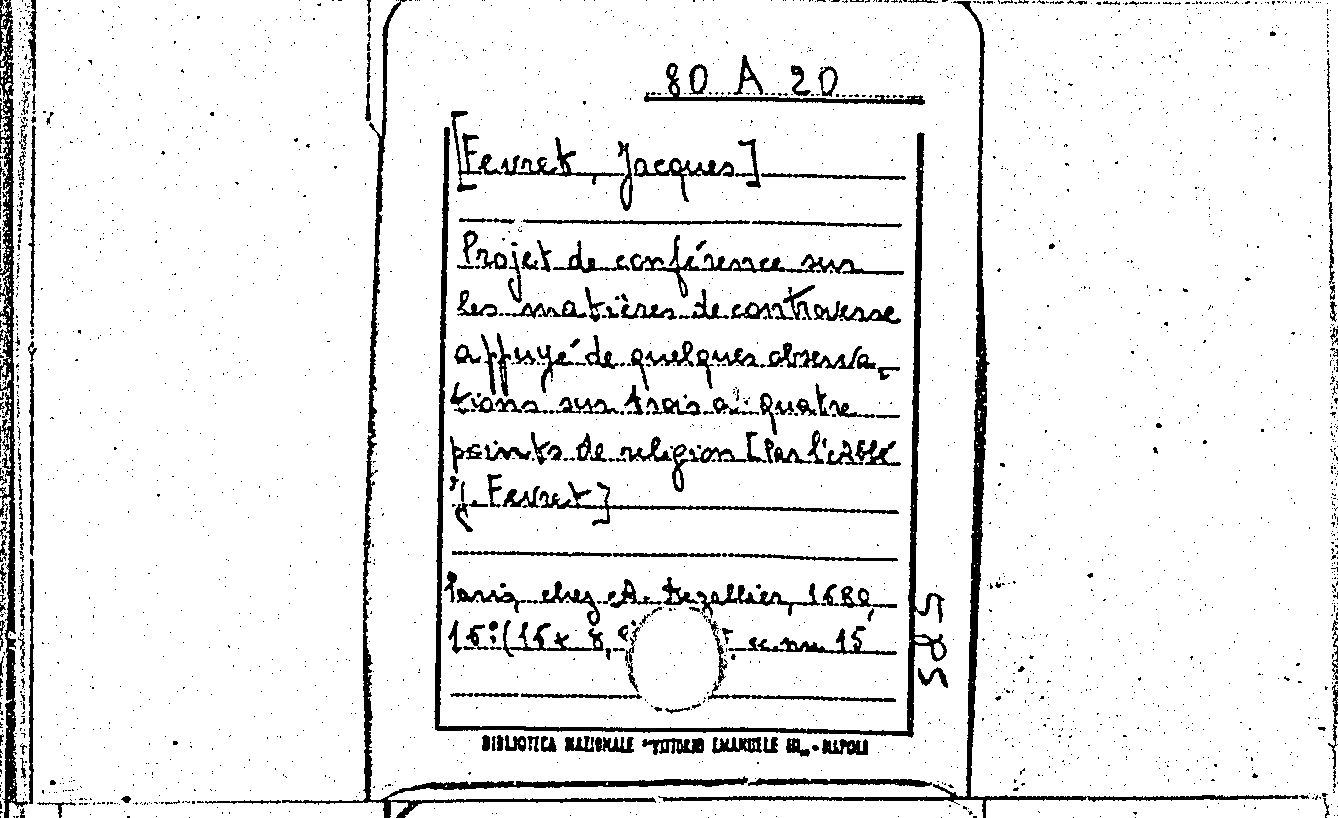 80 A 20
[Fevret, Jacques]
Projet de conférence sur
les matières de controverse
appuyé de quelques observa-
tions sur trois a quatre
points de religion [Par l'Abbé
J. Fevret]
Paris, chez A. Dezallier, 1680,
16:(15 x 8, cc. nn. 15
585
BIBLIOTECA NAZIONALE "VITTORIO EMANUELE III„ - NAPOLI